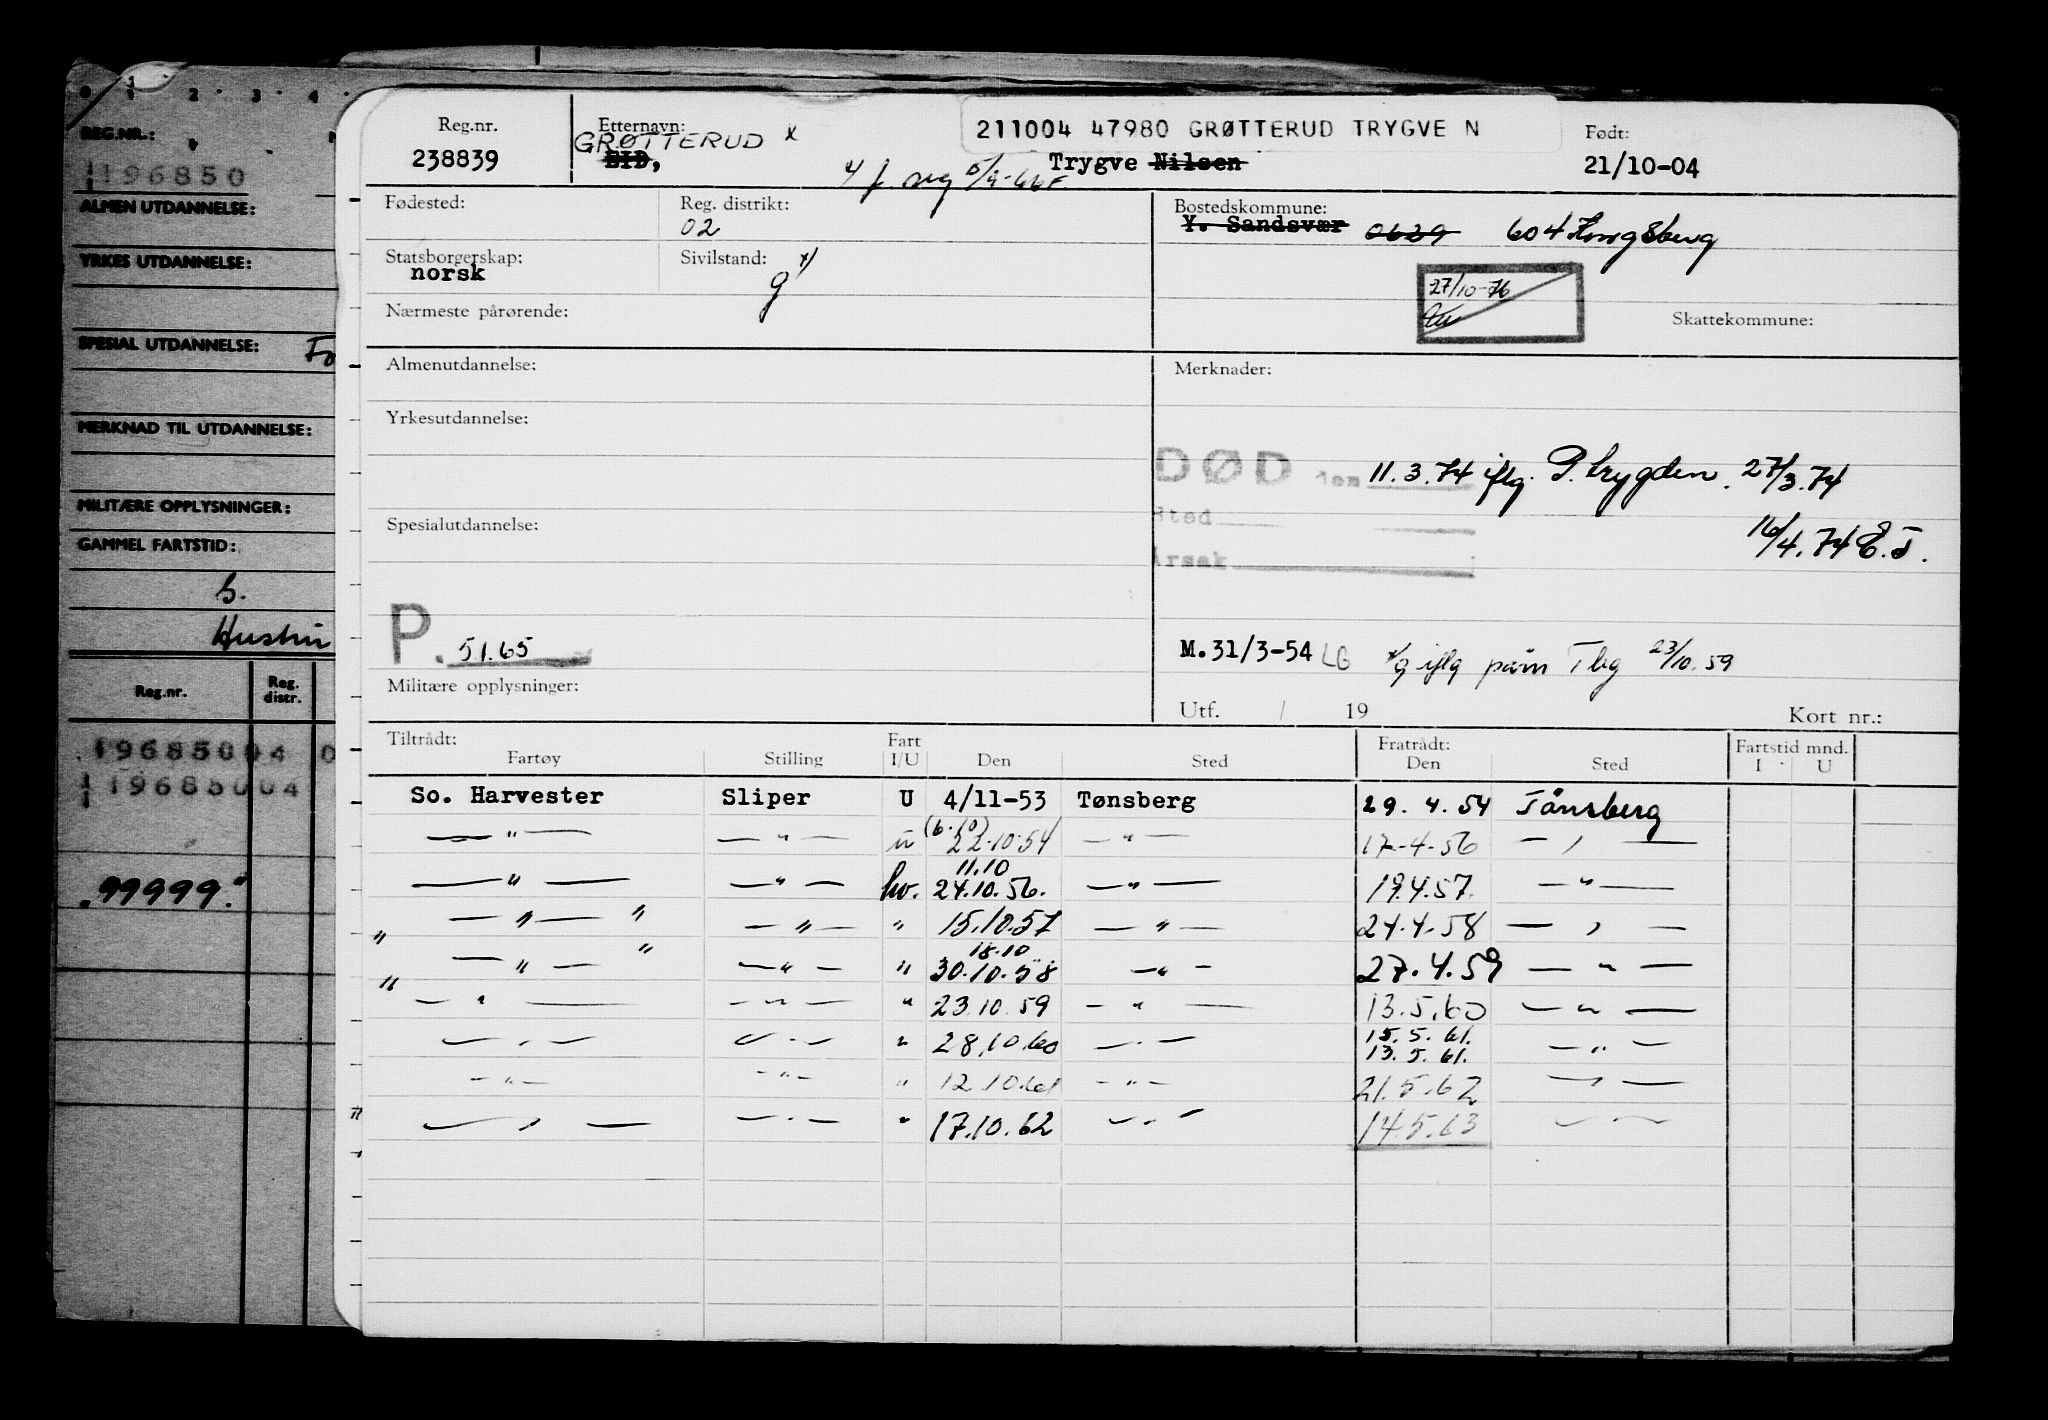 0 1 2 3 4
REG.NR.:
196850
ALMEN UTDANNELSE:
YRKES UTDANNELSE:
SPESIAL UTDANNELSE: Fo
MERKNAD TIL UTDANNELSE:
MILITÆRE OPPLYSNINGER:
GAMMEL FARTSTID:
Hustru
Reg.nr. Reg. distr.
19685004 0
19685004
99999
Reg.nr. Etternavn: 211004 47980 GRØTTERUD TRYGVE N Født:
238839 GRØTTERUD x EID, Trygve Nilsen 21/10-04
Fødested: Reg. distrikt: Bostedskommune:
02 Y. Sandsvær 0629 604 Kongsberg
Statsborgerskap: Sivilstand: x)
norsk g
27/10-76
Nærmeste pårørende: Skattekommune:
Almenutdannelse: Merknader:
Yrkesutdannelse:
DØD den 11.3.74 iflg. P. trygden. 27/3.74
Sted
Spesialutdannelse: 16/4.74 E.T.
Årsak
P. 51.65
M.31/3-54 LG x/g iflg påm Tbg 23/10.59
Militære opplysninger:
Utf. / 19 Kort nr.:
Tiltrådt: Fart Fratrådt: Fartstid mnd.
Fartøy Stilling I/U Den Sted Den Sted I U
So. Harvester Sliper U 4/11-53 Tønsberg 29. 4. 54 Tønsberg
— " — — " — u (6.10) 22.10.54 — " — 17-4-56 — " —
— " — — " — hv. 11.10 24.10.56. — " — 19.4.57. — " —
" — " — " — " — " 15.10.57 — " — 24.4.58 — " —
" — " — " — " — " 18.10 30.10.58 — " — 27.4.59 — " —
— " — — " — " 23.10.59 — " — 13.5.60 — " —
— " — — " — " 28.10.60 — " — 15.5.61. 13.5.61. — " —
— " — — " — " 12.10.61 — " — 21.5.62 — " —
" — " — — " — " 17.10.62 — " — 14.5.63 — " —